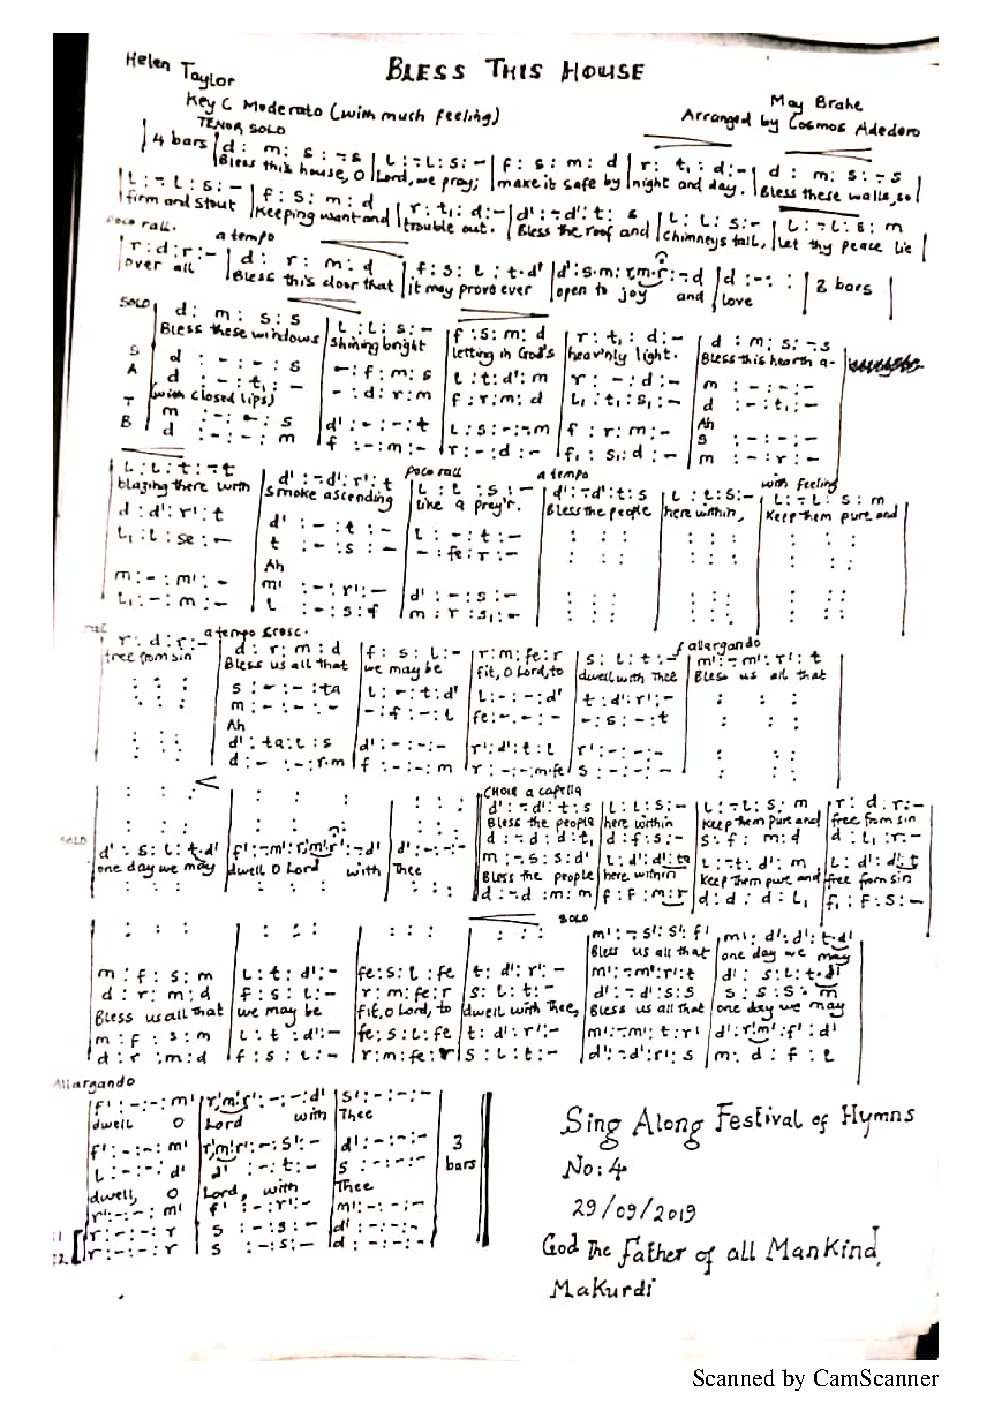 BLESS THIS HOUSE
Helen Taylor
Key C Moderato (with much feeling)
May Brahe
Arranged by Cosmos Adedero
TENOR SOLO
4 bars | d : m : s : -s | l : -l : s : - | f : s : m : d | r : t₁ : d : - | d : m : s : -s
Bless this house, O Lord, we pray; make it safe by night and day. Bless these walls, so
l : -l : s : - | f : s : m : d | r : t₁ : d : - | d' : -d' : t : s | l : l : s : - | l : -l : s : m
firm and stout Keeping want and trouble out. Bless the roof and chimneys tall, let thy peace lie
poco rall. a tempo
r : d : r : - | d : r : m : d | f : s : l : t.d' | d' : s.m : r.m.r : -d | d : - : : | 2 bars
over all Bless this door that it may prove ever open to joy and love
SOLO
d : m : s : s | l : l : s : - | f : s : m : d | r : t₁ : d : - | d : m : s : -s
Bless these windows shining bright letting in God's heav'nly light. Bless this hearth a-
S d : - : - : s | - : f : m : s | l : t : d' : m | r : - : d : - | m : - : - : -
A d : - : t₁ : - | - : d : r : m | f : r : m : d | l₁ : t₁ : s₁ : - | d : - : t₁ : -
(with closed lips) Ah
T m : - : - : s | d' : - : - : t | l : s : - : -m | f : r : m : - | s : - : - : -
B d : - : - : m | f : - : m : - | r : - : d : - | f₁ : s₁ : d : - | m : - : r : -
poco rall a tempo with feeling
l : l : t : -t | d' : -d' : r' : t | l : t : s : - | d' : -d' : t : s | l : l : s : - | l : -l : s : m
blazing there with smoke ascending like a prey'r. Bless the people here within, Keep them pure and
d : d' : r' : t | d' : - : t : - | l : - : t : -
l₁ : l : se : - | t : - : s : - | - : fe : r : -
Ah
m : - : m' : - | m' : - : r' : - | d' : - : s : -
l₁ : - : m : - | l : - : s : f | m : r : s₁ : -
a tempo cresc. allargando
r : d : r : - | d : r : m : d | f : s : l : - | r : m : fe : r | s : l : t : - | m' : -m' : r' : t
free from sin Bless us all that we may be fit, O Lord, to dwell with Thee Bless us all that
s : - : - : ta | l : - : t : d' | l : - : - : d' | t : d' : r' : -
m : - : - : - | - : f : - : l | fe : - : - : - | - : s : - : t
Ah
d' : ta : l : s | d' : - : - : - | r' : d' : t : l | r' : - : - : -
d : - : - : r.m | f : - : - : m | r : - : - : m.fe | s : - : - : -
CHOIR a capella
d' : -d' : t : s | l : l : s : - | l : -l : s : m | r : d : r : -
Bless the people here within Keep them pure and free from sin
d : -d : d : t₁ | d : f : s : - | s : f : m : d | d : l₁ : r : -
SOLO d' : s : l : t.d' | f' : -m' : r'.m'.r' : -d' | d' : - : - : - | m : -s : s : d' | l : d' : d' : to | l : -t : d' : m | l : d' : d' : t
one day we may dwell O Lord with Thee Bless the people here within Keep them pure and free from sin
d : -d : m : m | f : f : m : r | d : d : d : l₁ | f₁ : f : s : -
SOLO
m' : -s' : s' : f' | m' : d' : d' : t.d'
Bless us all that one day we may
m : f : s : m | l : t : d' : - | fe : s : l : fe | t : d' : r' : - | m' : -m' : r' : t | d' : s : l : t.d'
d : r : m : d | f : s : l : - | r : m : fe : r | s : l : t : - | d' : -d' : s : s | s : s : s : m
Bless us all that we may be fit, O Lord, to dwell with Thee, Bless us all that one day we may
m : f : s : m | l : t : d' : - | fe : s : l : fe | t : d' : r' : - | m' : -m' : t : r' | d' : r'm' : f' : d'
d : r : m : d | f : s : l : - | r : m : fe : r | s : l : t : - | d' : -d' : r' : s | m : d : f : l
Allargando
f' : - : - : m' | r'.m'.r' : - : - : d' | s' : - : - : -
dwell O Lord with Thee
f' : - : - : m' | r'.m'.r' : - : s' : - | d' : - : - : - | 3
l : - : - : d' | d' : - : t : - | s : - : - : - | bars
dwell, O Lord, with Thee
r' : - : - : m' | f' : - : r' : - | m' : - : - : -
r : - : - : r | s : - : s : - | d' : - : - : -
r : - : - : r | s : - : s : - | d : - : - : -
Sing Along Festival of Hymns
No: 4
29/09/2019
God The Father of all Mankind,
Makurdi
Scanned by CamScanner